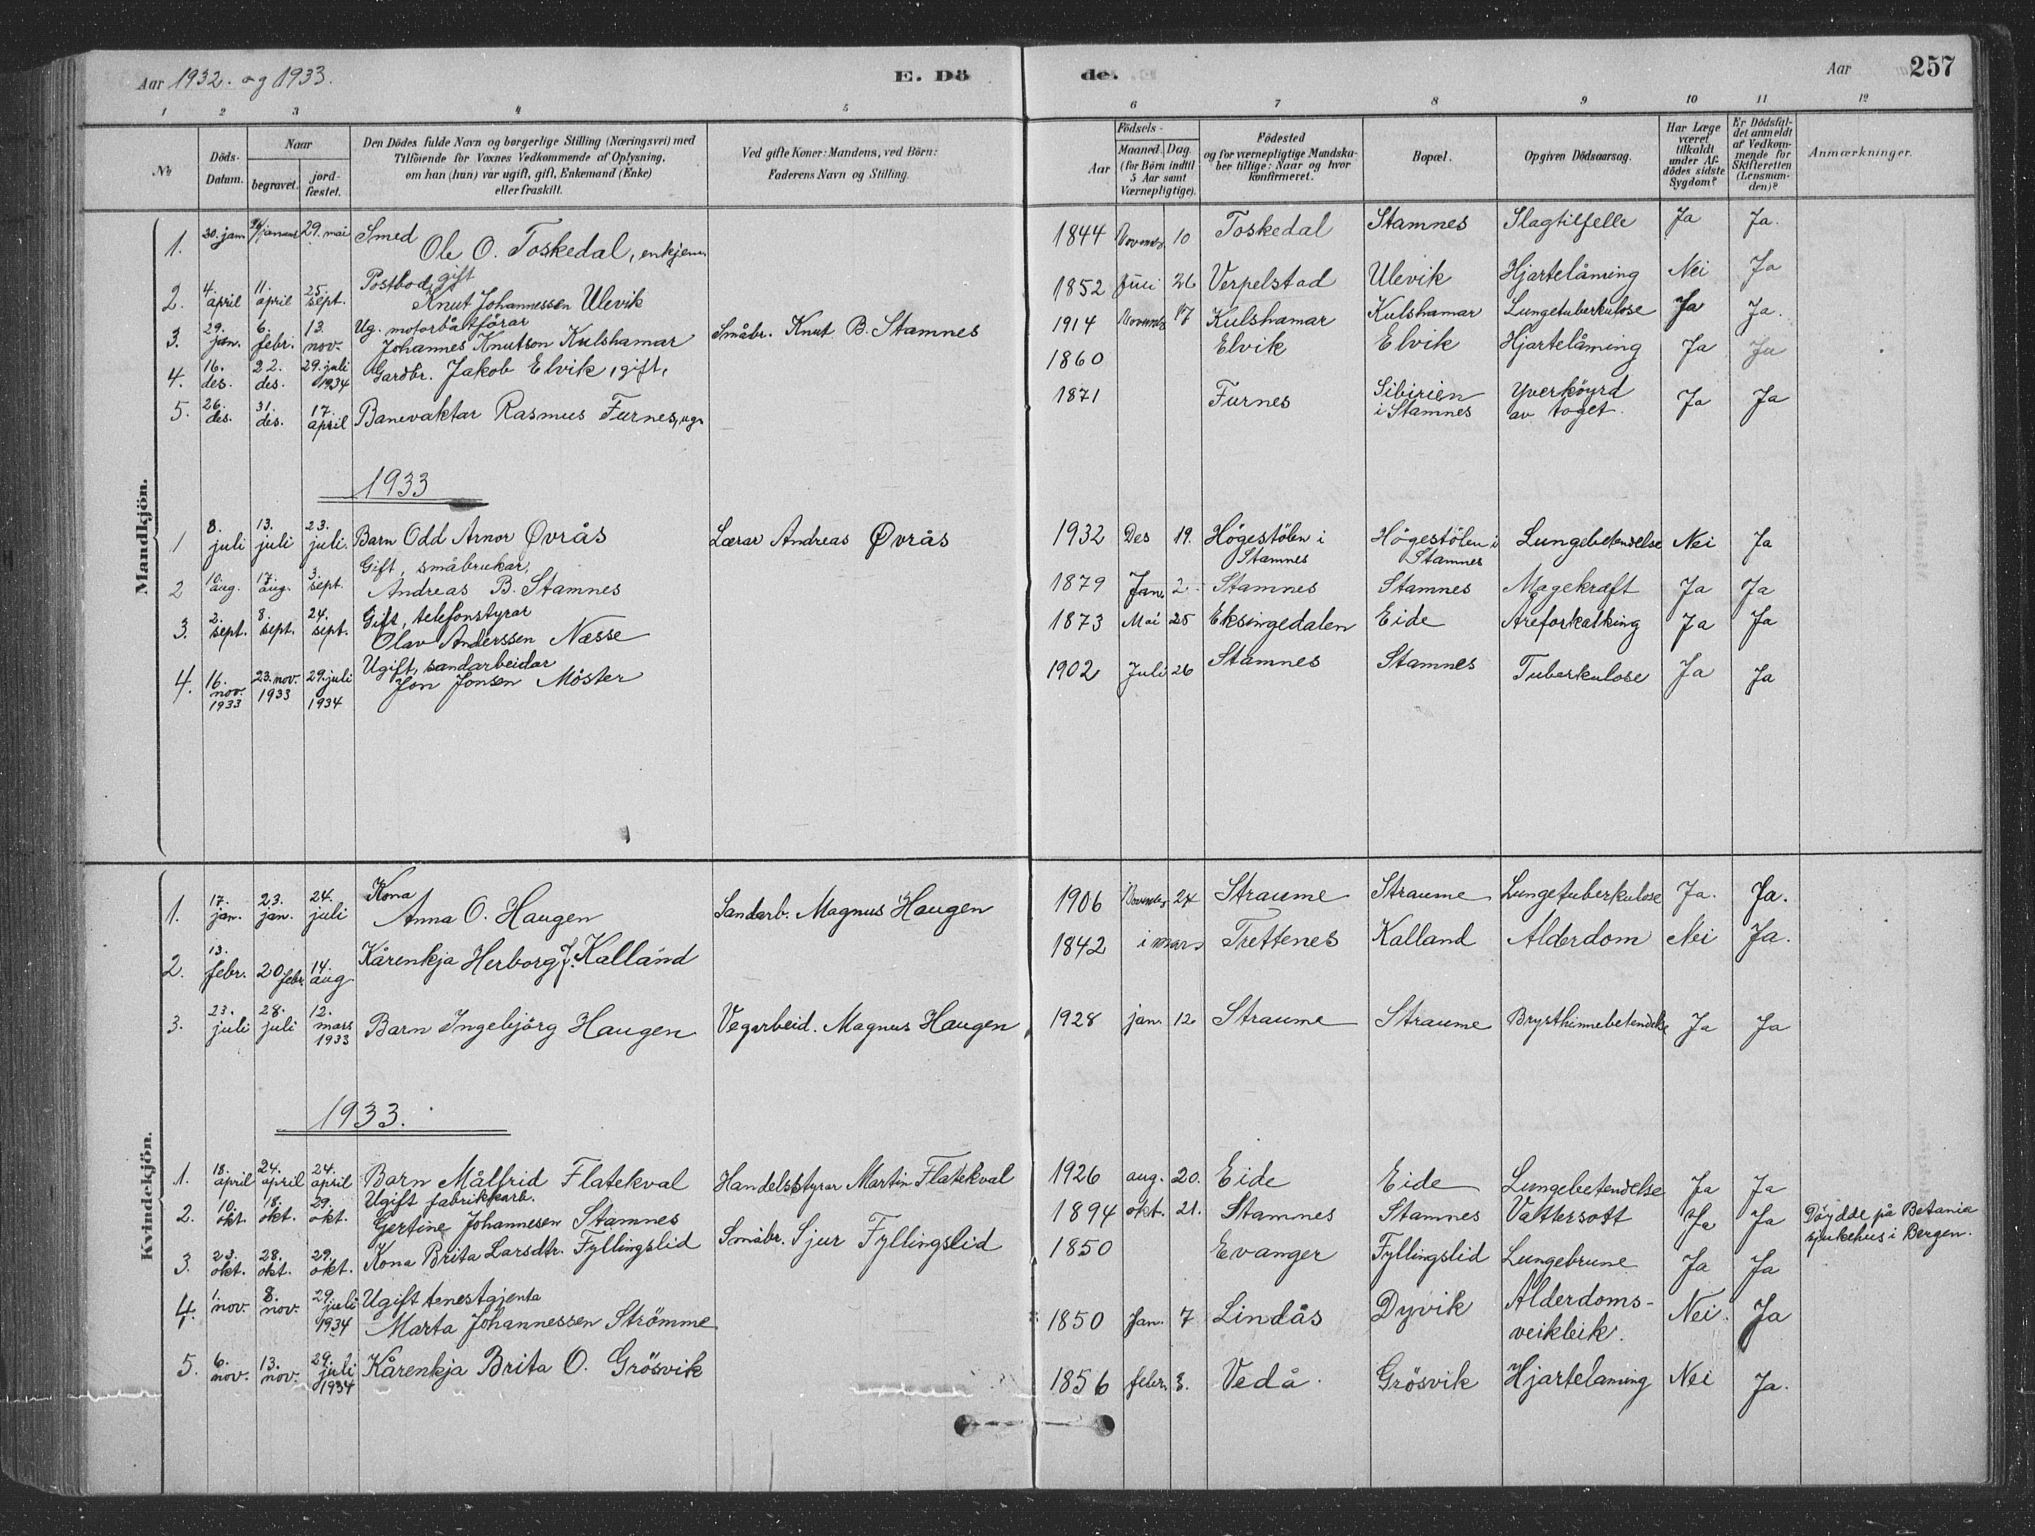 Aar 1932. og 1933. E. Dö de. Aar 257
1 2 3 4 5 6 7 8 9 10 11 12
No
Döds-Datum.
Naar
begravet.
jord-fæstet.
Den Dödes fulde Navn og borgerlige Stilling (Næringsvei) med
Tilföiende for Voxnes Vedkommende af Oplysning,
om han (hun) var ugift, gift, Enkemand (Enke)
eller fraskilt.
Ved gifte Koner: Mandens, ved Börn:
Faderens Navn og Stilling.
Födsels-
Aar
Maaned. Dag
(for Börn indtil
5 Aar samt
Værnepligtige).
Födested
og for værnepligtige Mandska-
ber tillige: Naar og hvor
konfirmeret.
Bopæl.
Opgiven Dödsaarsag.
Har Læge
været
tilkaldt
under Af-
dödes sidste
Sygdom?
Er Dödsfal-
det anmeldt
af Vedkom-
mende for
Skifteretten
(Lensman-
den)?
Anmærkninger.
Mandkjön.
1. 30. jan. 29. mai Smed Ole O. Toskedal, enkjem. 1844 Novemb. 10 Toskedal Stamnes Slagtilfelle Ja Ja.
2. 4. april 11. april 25. sept. Postbod, gift Knut Johannessen Ulevik 1852 Juni 26 Verpelstad Ulevik Hjartelåming Nei Ja
3. 29. jan. 6. febr. 13 nov. Ug. motorbåtförar Johannes Knutson Kulshamar Småbr. Knut B. Stamnes 1914 Novemb. 17 Kulshamar Kulshamar Lungetuberkulose Ja Ja.
4. 16. des. 22. des. 29. juli 1934 Gardbr. Jakob Elvik, gift, 1860 Elvik Elvik Hjartelåming Ja Ja
5. 26. des. 31. des. 17. april Banevaktar Rasmus Furnes, ug. 1871 Furnes Sibirien i Stamnes Yverköyrd av toget. Ja Ja
1933
1 8. juli 13. juli 23. juli. Barn Odd Arnor Øvrås Lærar Andreas Øvrås 1932 Des 19. Högestölen i Stamnes Högestölen i Stamnes Lungebetendelse Nei Ja
2 10. aug. 17. aug. 3. sept. Gift, småbrukar, Andreas B. Stamnes 1879 Jan. 2 Stamnes Stamnes Magekræft Ja Ja
3. 2. sept. 8. sept. 24. sept. Gift, telefonstyrar Olav Anderssen Næsse 1873 Mai 25 Eksingedalen Eide Åreforkalking Ja Ja
4. 16. nov. 1933 23. nov. 1933 29. juli 1934 Ugift, sandarbeidar Jon Jonsen Möster 1902 Juli 26 Stamnes Stamnes Tuberkulose Ja Ja
Kvindekjön.
1. 17. jan. 23. jan. 24. juli Kona Anna O. Haugen Sandarb. Magnus Haugen 1906 November 24 Straume Straume Lungetuberkulose Ja. Ja.
2. 13. febr. 20 febr. 14. aug Kårenkja Herborg J. Kalland 1842 i mars Trettenes Kalland Alderdom Nei Ja.
3. 23. juli 28. juli 12. mars 1933 Barn Ingebjörg Haugen Vegarbeid. Magnus Haugen 1928 jan. 12 Straume Straume Brysthinnebetendelse Ja Ja
1933.
1. 18. april 24. april 24. april Barn Målfrid Flatekval Handelsstyrar Martin Flatekval 1926 aug. 20. Eide Eide Lungebetendelse Ja Ja
2. 10. okt. 18. okt. 29. okt. Ugift fabrikkarb. Gertine Johannesen Stamnes 1894 okt. 21. Stamnes Stamnes Vattersott Ja Ja Döydde på Betania sjukehus i Bergen.
3. 23. okt. 28. okt. 29. okt. Kona Brita Larsdtr. Fyllingslid Småbr. Sjur Fyllingslid 1850 Evanger Fyllingslid Lungebrune Ja Ja
4. 1. nov. 8. nov. 29. juli 1934 Ugift tenestgjenta Marta Johannessen Strömme 1850 Jan. 7 Lindås Dyvik Alderdoms-veikleik. Nei. Ja
5. 6. nov. 13. nov. 29. juli 1934 Kårenkja Brita O. Grösvik 1856 febr. 3. Vedå. Grösvik Hjartelaming Nei Ja.